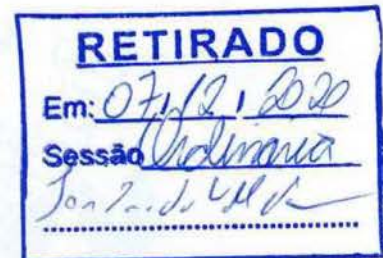 RETIRADO
Em: 07/12/2020
Sessão Ordinaria